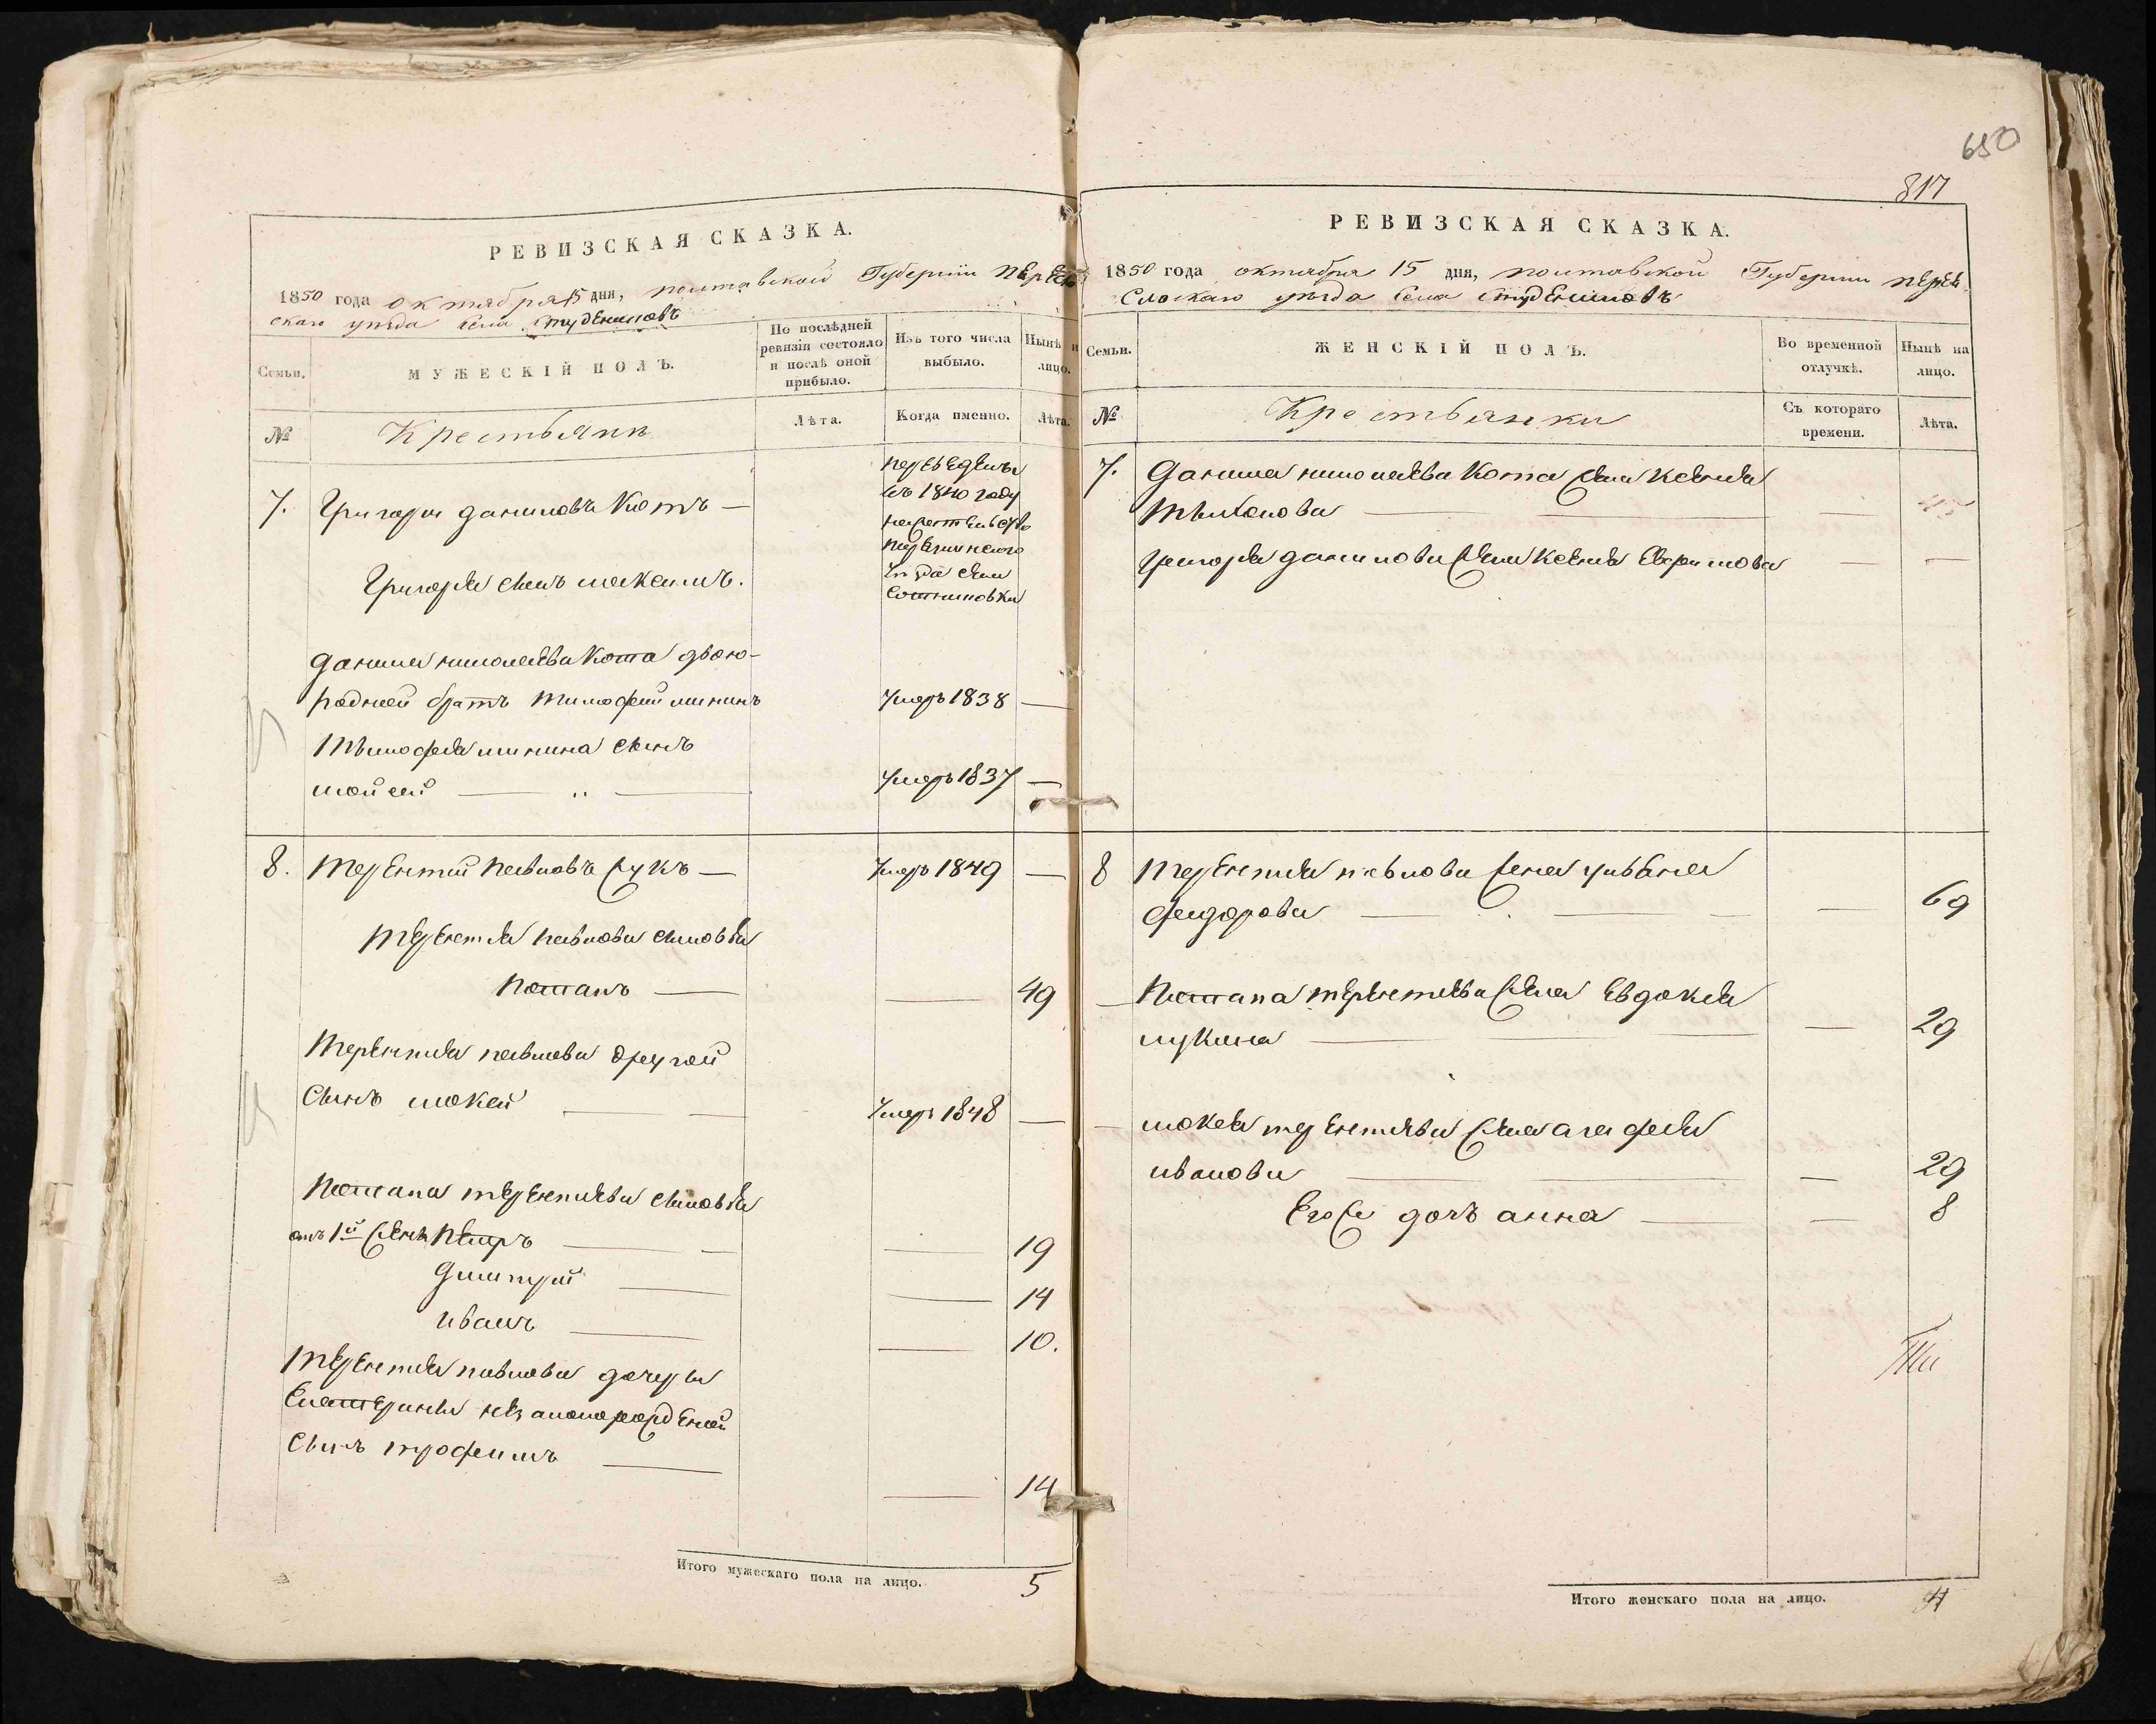 РЕВИЗСКАЯ СКАЗКА.
1850 года октября 15 дня, полтавской Губернии перея
скаго уезда села студениковъ
Семьи.
МУЖЕСКІЙ ПОЛЪ.
По послѣдней ревизіи состояло и послѣ оной прибыло.
Изъ того числа выбыло.
Нынѣ на лицо.
№
Крестьяне
Лѣта.
Когда именно.
Лѣта.
7. Григорій даниловъ Котъ —
переведены
въ 1840 году
уезда села
Григорія сынъ максимъ.
данила николаева Кота двою-
родней братъ тимофей мининъ
Умеръ 1838 —
Тимофея минина сынъ
мойсей —
Умеръ 1837 —
8. Терентій павловъ жукъ —
Умеръ 1849 —
Терентия павлова сыновья
Потапъ — — 49
Терентия павлова другой
Сынъ мокей —
Умеръ 1848 —
Потапа терентиева сыновья
отъ 1й жены Петръ — — 19
Дмитрий — — 14
иванъ — — 10.
Терентия павлова дочери
Екатерины незаконорожденой
Сынъ трофимъ — — 14
Итого мужескаго пола на лицо. 5
650
817
РЕВИЗСКАЯ СКАЗКА.
1850 года октября 15 дня, полтавской Губернии перея
славскаго уезда села студениковъ
Семьи.
ЖЕНСКІЙ ПОЛЪ.
Во временной отлучкѣ.
Нынѣ на лицо.
№
Крестьянки
Съ котораго времени.
Лѣта.
7. Данила николаева Кота жена Ксения
— — 45
Григория данилова жена Ксения — —
8 Терентия павлова жена ульяна
федорова — — 69
Потапа терентиева жена Евдокия
лукина — — 29
мокея терентиева жена агафия
иванова — — 29
Его же дочь анна — — 8
Итого женскаго пола на лицо. 4